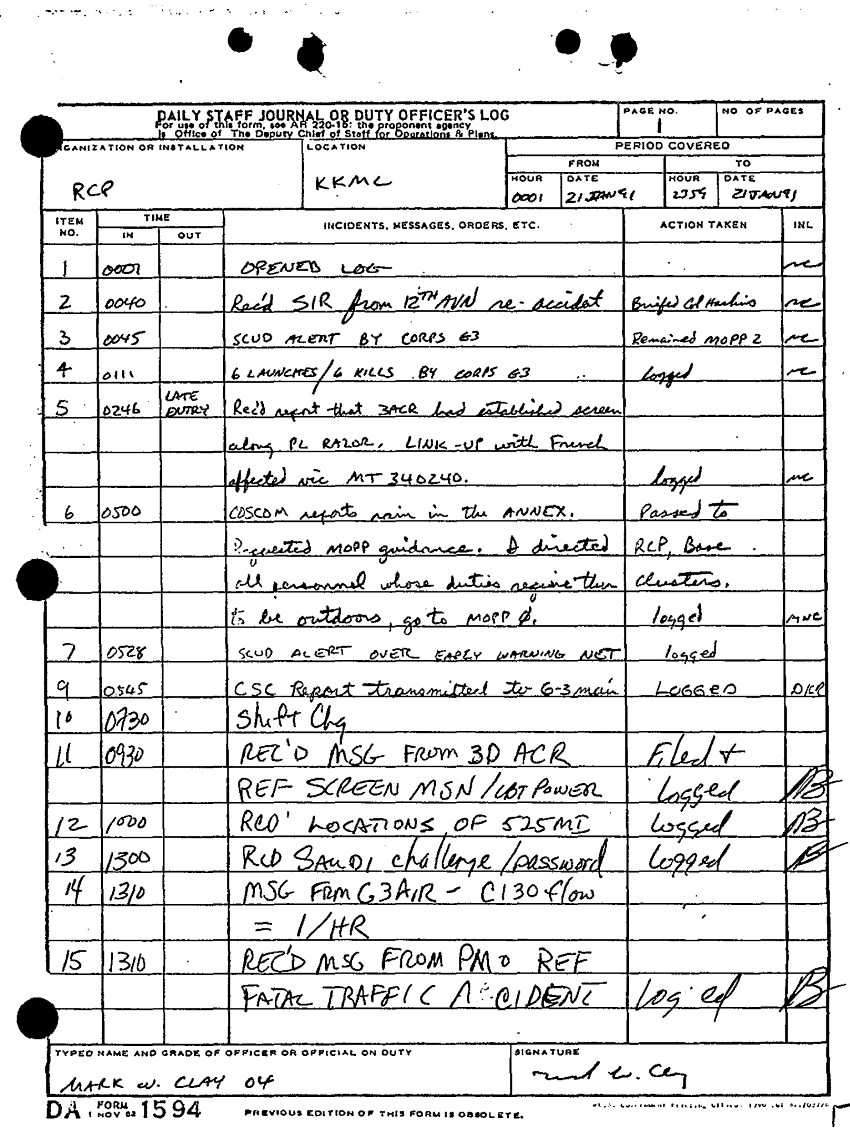 DAILY STAFF JOURNAL OR DUTY OFFICER'S LOG
For use of this form, see AR 220-15: the proponent agency
is Office of The Deputy Chief of Staff for Operations & Plans.
PAGE NO. 1
NO OF PAGES
ORGANIZATION OR INSTALLATION RCP
LOCATION KKMC
PERIOD COVERED
FROM TO
HOUR DATE HOUR DATE
0001 21 JAN 91 2359 21 JAN 91
ITEM NO. TIME INCIDENTS, MESSAGES, ORDERS, ETC. ACTION TAKEN INL
IN OUT
1 0001 OPENED LOG
2 0040 Rec'd SIR from 12TH AVN re-accidat Briefed Col
3 0045 SCUD ALERT BY CORPS G3 Remained MOPP 2
4 0111 6 LAUNCHES/6 KILLS BY CORPS G3 logged
5 0246 LATE ENTRY Rec'd report that 3ACR had established screen
along PL RAZOR. LINK-UP with French
affected vic MT 340240. logged
6 0500 COSCOM reports rain in the ANNEX. Passed to
Requested MOPP guidance. I directed RCP, Base
all personnel whose duties require them clusters.
to be outdoors, go to MOPP Ø. logged MWC
7 0528 SCUD ALERT OVER EARLY WARNING NET logged
9 0545 CSC Report transmitted to G-3 main LOGGED
10 0730 Shift Chg
11 0930 REC'D MSG FROM 3D ACR Filed +
REF SCREEN MSN/CBT POWER logged
12 1000 RCD' LOCATIONS OF 525MI logged
13 1300 RCD SAUDI challenge/password logged
14 1310 MSG FRM G3AIR - C130 flow
= 1/HR
15 1310 REC'D MSG FROM PMO REF
FATAL TRAFFIC ACCIDENT Logged
TYPED NAME AND GRADE OF OFFICER OR OFFICIAL ON DUTY
MARK W. CLAY O4
SIGNATURE
DA FORM 1 NOV 62 1594 PREVIOUS EDITION OF THIS FORM IS OBSOLETE.